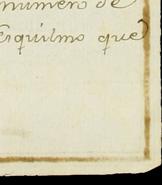 numero de
esquilmo que